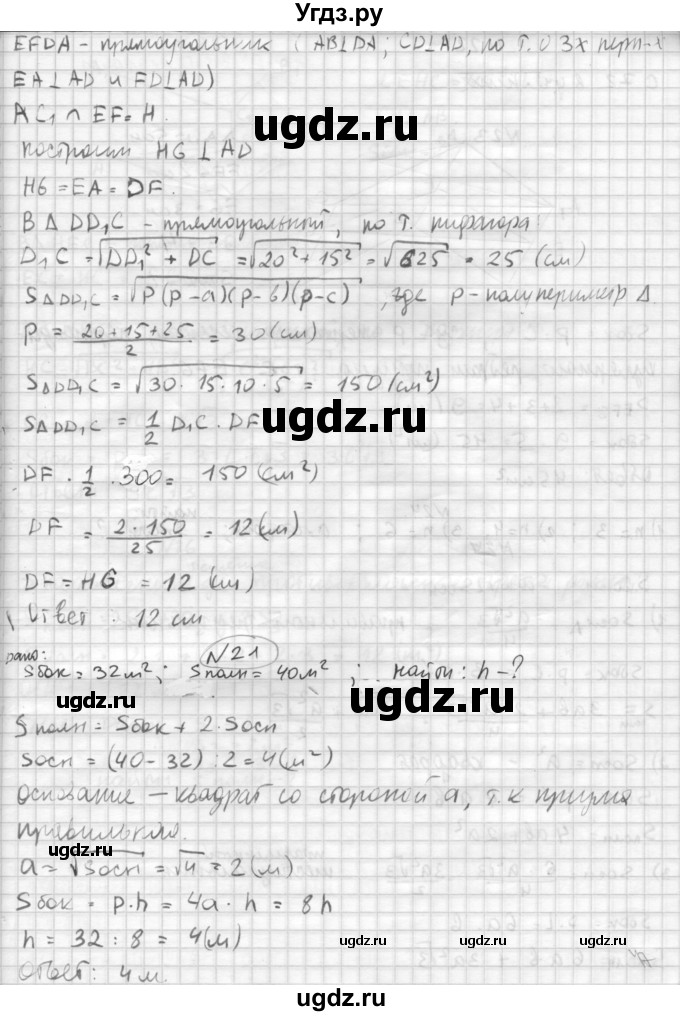 Угдз.ру
EFDA - прямоугольник ( AB⊥DA; CD⊥AD, по т. о 3х перп-х
EA⊥AD и FD⊥AD)
ugdz.ru
AC₁ ∩ EF = H.
построим HG ⊥ AD
HG = EA = DF.
В Δ DD₁C - прямоугольный, по т. пифагора:
D₁C = √(DD₁² + DC) = √(20² + 15²) = √625 = 25 (см)
S△DD₁C = √(P(P-a)(P-b)(p-c)) , где p - полупериметр Δ.
ugdz.ru ugdz.ru
P = (20+15+25)/2 = 30 (см)
S△DD₁C = √(30·15·10·5) = 150 (см²)
S△DD₁C = 1/2 D₁C · DF
ugdz.ru
DF · 1/2 · 300 = 150 (см²)
DF = (2·150)/25 = 12 (см)
ugdz.ru
DF = HG = 12 (см)
Ответ 12 см
N21
Дано:
Sбок = 32м²; Sполн = 40м² ; найти: h - ?
ugdz.ru ugdz.ru
Sполн = Sбок + 2·Sосн
Sосн = (40-32):2 = 4(м²)
ugdz.ru
основание - квадрат со стороной a, т.к призма
правильная.
ugdz.ru
a = √Sосн = √4 = 2 (м)
Sбок = p·h = 4a·h = 8h
h = 32 : 8 = 4(м)
ugdz.ru ugdz.ru
Ответ: 4 м.
ugdz.ru